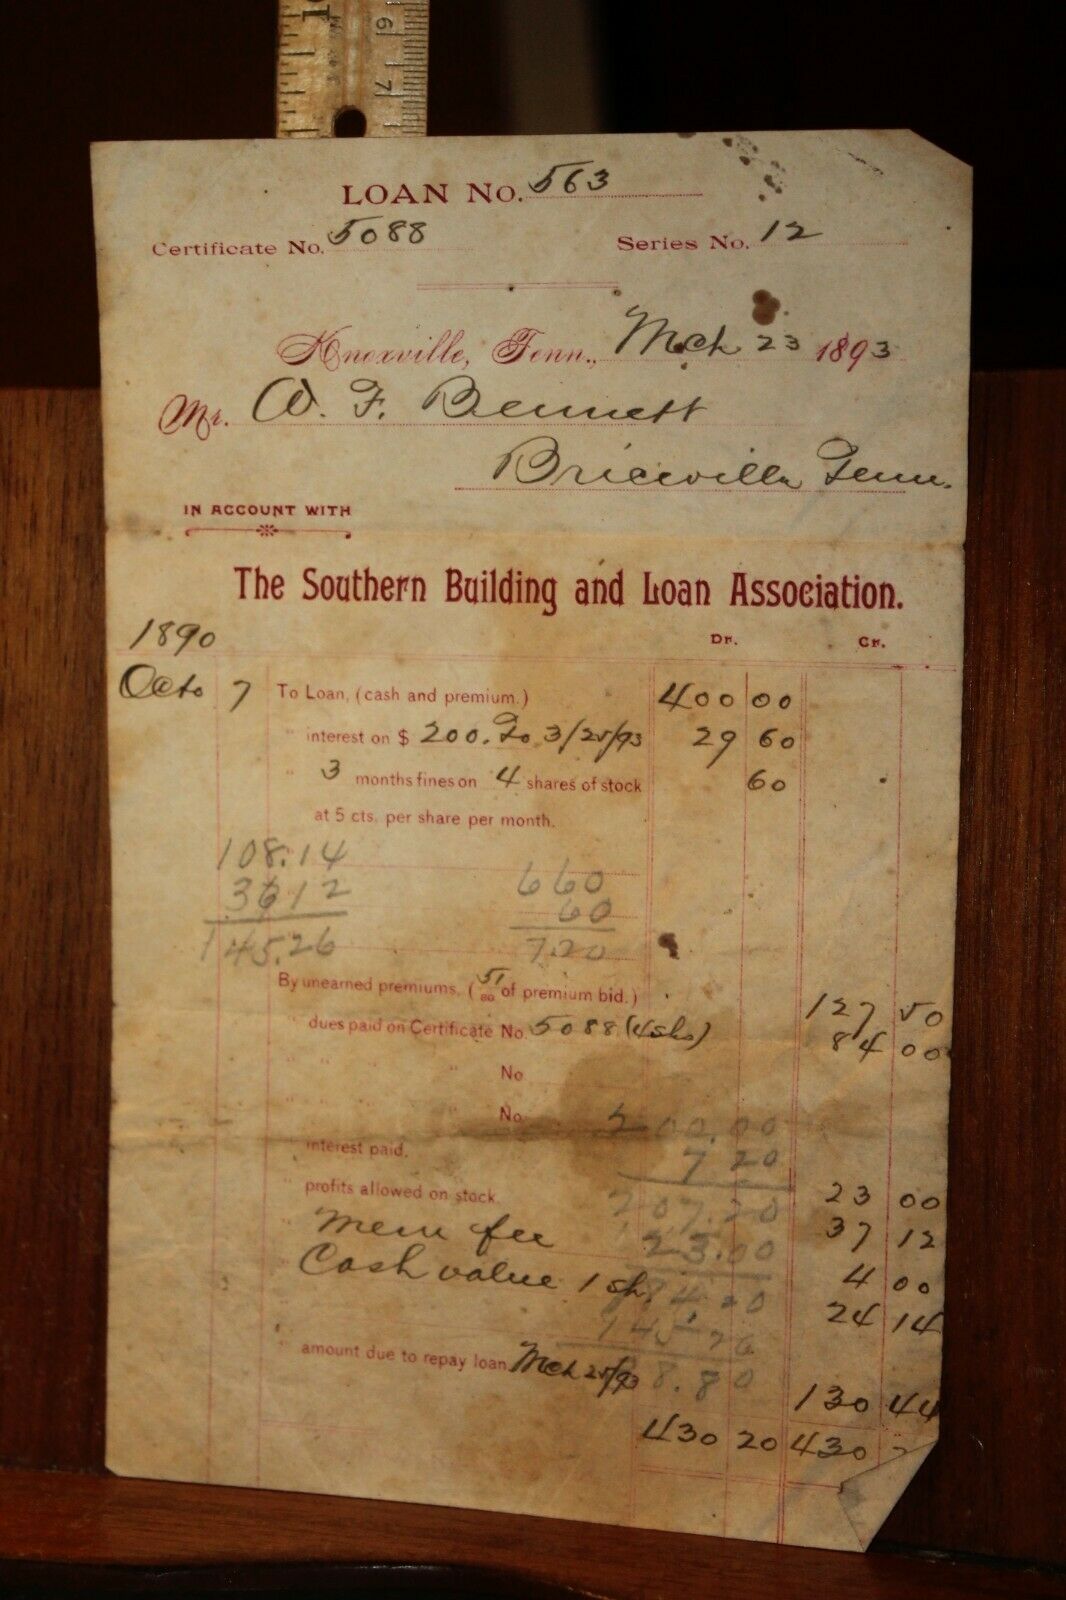 6
7
LOAN No. 563
Certificate No. 5088 Series No. 12
Knoxville, Tenn., Mch 23 1893
Mr. W. F. Bennett
Briceville Tenn.
IN ACCOUNT WITH
The Southern Building and Loan Association.
1890 DR. CR.
Octo 7 To Loan, (cash and premium.) 400 00
" interest on $ 200. To 3/25/93 29 60
" 3 months fines on 4 shares of stock 60
at 5 cts. per share per month.
108.14
3612 660
60
145.26 7.20
By unearned premiums, ( 51/80 of premium bid.) 127 50
" dues paid on Certificate No. 5088 (4 shs) 84 00
" " " " No.
" " " " No. 200.00
" interest paid, 7 20 23 00
" profits allowed on stock. 207.20 37 12
" Mem fee 23.00 4 00
Cash value 1 sh. 184.20 24 14
145 26
" amount due to repay loan, Mch 25/93 8.80 130 44
430 20 430